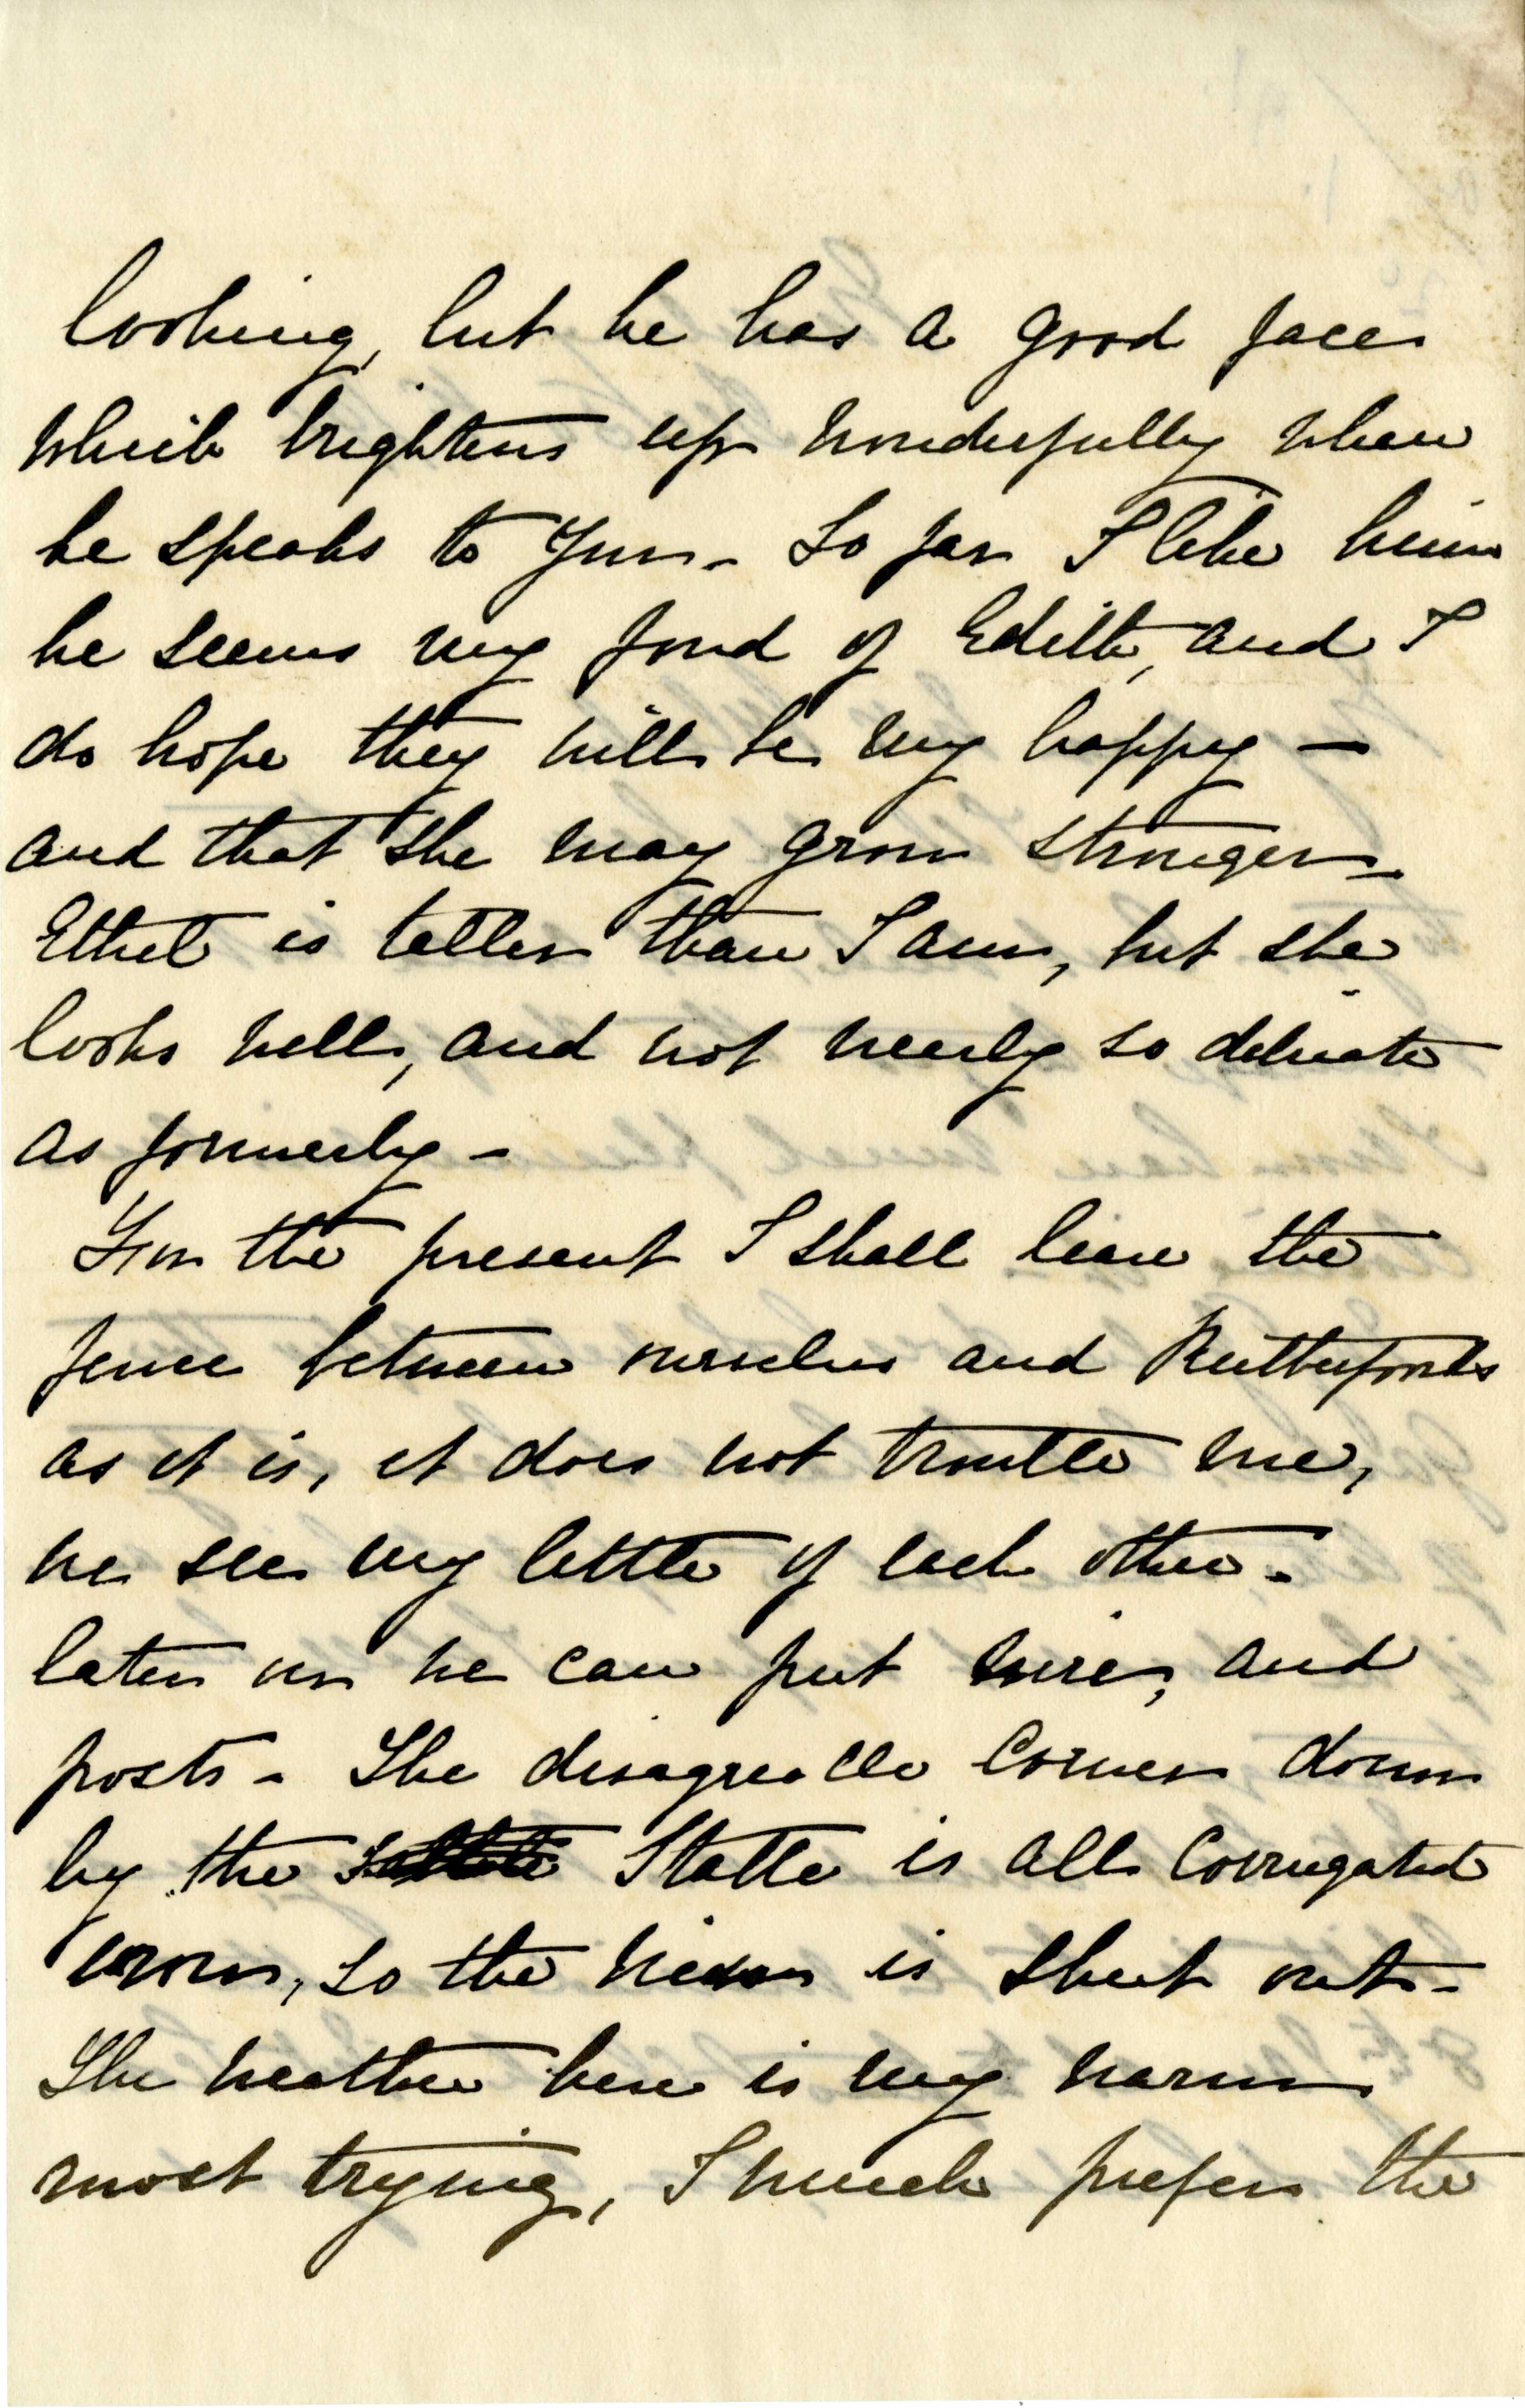 looking, but he has a good face
which brightens up wonderfully when
he speaks to you – So far I like him
he seems very fond of Edith, and I
do hope they will be very happy –
and that she may grow stronger –
Ethel is taller than I am, but she
looks well, and not nearly so delicate
as formerly –
For the present I shall leave the
fence between ourselves and Rutherfords
as it is, it does not trouble me,
we see very little of each other –
later on we can put wire, and
posts – The disagreeable corner down
by the Stable is all corrugated
iron, so the view is shut out –
The weather here is very warm
most trying, I much prefer the